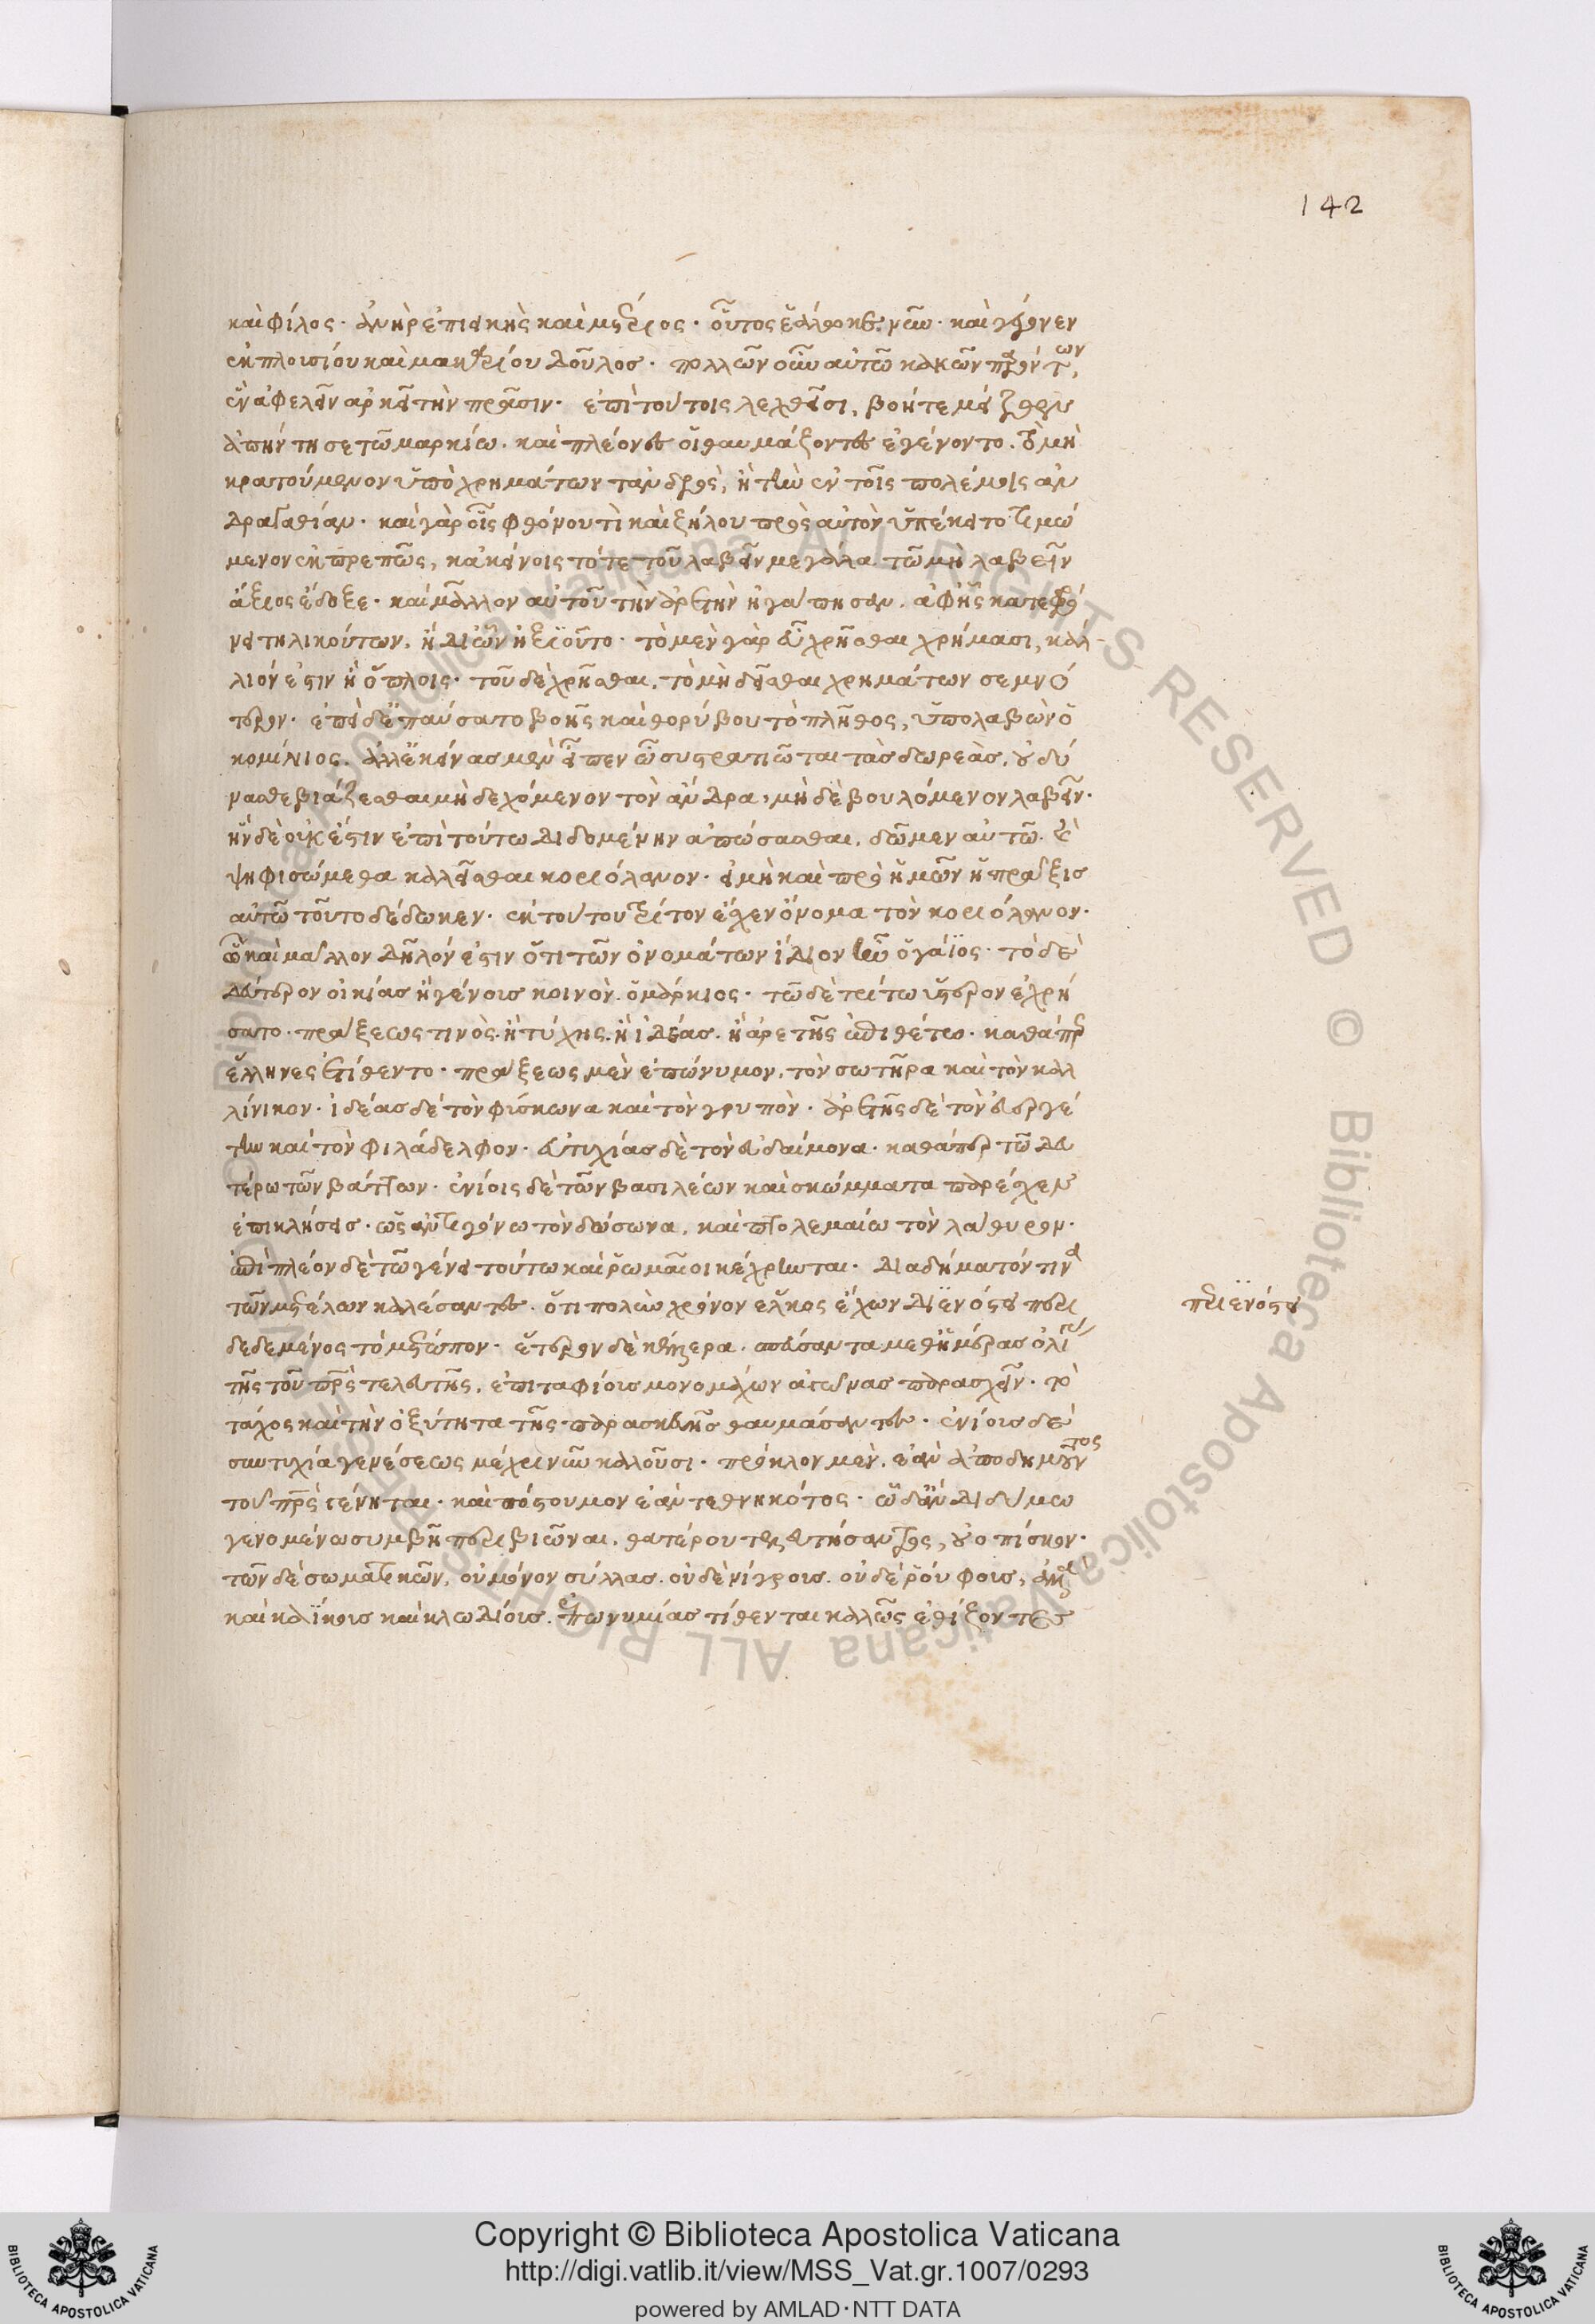 142
καὶ φίλος· ἀνὴρ ἐπιεικὴς καὶ μέτριος· οὗτος ἑάλωκε νῦν· καὶ γέγονεν
ἐκ πλουσίου καὶ μακαρίου δοῦλος· πολλῶν οὖν αὐτῶ κακῶν παρόντων,
ἓν ἀφελεῖν ἀρκεῖ τὴν πρᾶσιν· ἐπὶ τούτοις λεχθεῖσι, βοή τε μείζων
ἀπήντησε τῶ μαρκίω. καὶ πλέονες οἱ θαυμάζοντες ἐγένοντο. τὸ μὴ
κρατούμενον ὑπὸ χρημάτων τἀνδρὸς, ἢ τὴν ἐν τοῖς πολέμοις ἀν
δραγαθίαν· καὶ γὰρ οἷς φθόνου τὶ καὶ ζήλου πρὸς αὐτὸν ὑπέκειτο τιμώ
μενον ἐκπρεπῶς, κἀκείνοις τότε τοῦ λαβεῖν μεγάλα τῶ μὴ λαβεῖν
ἄξιος ἔδοξε· καὶ μᾶλλον αὐτοῦ τὴν ἀρετὴν ἠγάπησαν. ἀφ' ἧς κατεφρό
νει τηλικούτων, ἢ δι' ὧν ἠξιοῦτο· τὸ μὲν γὰρ εὖ χρῆσθαι χρήμασι, κάλ
λιόν ἐστιν ἢ ὅπλοις· τοῦ δὲ χρῆσθαι, τὸ μὴ δεῖσθαι χρημάτων σεμνό
τερον· ἐπεὶ δ' ἐπαύσατο βοῆς καὶ θορύβου τὸ πλῆθος, ὑπολαβὼν ὁ
κομίνιος. ἀλλ' ἐκείνας μὲν εἶπεν ὦ συστρατιῶται τὰς δωρεὰς, οὐ δύ
νασθε βιάζεσθαι μὴ δεχόμενον τὸν ἄνδρα, μὴ δὲ βουλόμενον λαβεῖν·
ἣν δὲ οὐκ ἔστιν ἐπὶ τούτω διδομένην ἀπώσασθαι, δῶμεν αὐτῶ. καὶ
ψηφισώμεθα καλεῖσθαι κοριόλανον· εἰ μὴ καὶ πρὸ ἡμῶν ἡ πρᾶξις
αὐτῶ τοῦτο δέδωκεν· ἐκ τούτου τρίτον ἔσχεν ὄνομα τὸν κοριόλανον·
ὧ καὶ μάλλον δῆλόν ἐστιν ὅτι τῶν ὀνομάτων ἴδιον ἦν ὁ γάϊος· τὸ δὲ
δεύτερον οἰκίας ἢ γένους κοινὸν. ὁ μάρκιος· τῶ δὲ τρίτω ὕστερον ἐχρή
σατο· πράξεως τινὸς. ἢ τύχης. ἢ ἰδέας. ἢ ἀρετῆς ἐπιθέτω· καθάπερ
ἕλληνες ἐτίθεντο· πράξεως μὲν ἐπώνυμον, τὸν σωτῆρα καὶ τὸν καλ
λίνικον· ἰδέας δὲ τὸν φύσκωνα καὶ τὸν γρυπὸν· ἀρετῆς δὲ τὸν εὐεργέ
την καὶ τὸν φιλάδελφον· εὐτυχίας δὲ τὸν εὐδαίμονα· καθάπερ τῶ δευ
τέρω τῶν βάττων· ἐνίοις δὲ τῶν βασιλέων καὶ σκώμματα παρέσχεν
ἐπικλήσεις· ὡς ἀντιγόνω τὸν δώσωνα, καὶ πτολεμαίω τὸν λάθυρον·
ἐπὶ πλέον δὲ τῶ γένει τούτω καὶ ῥωμαῖοι κέχρηνται· διαδήματόν τινα
τῶν μετέλων καλέσαντες· ὅτι πολὺν χρόνον ἕλκος ἔχων διενόστει περι
δεδεμένος τὸ μέτωπον· ἕτερον δὲ κέλερα. σπεύσαντα μεθ' ἡμέρας ὀλίγας
τῆς τοῦ πατρὸς τελευτῆς, ἐπιταφίους μονομάχων ἀγῶνας παρασχεῖν· τὸ
τάχος καὶ τὴν ὀξύτητα τῆς παρασκευῆς θαυμάσαντες· ἐνίους δὲ
συντυχία γενέσεως μέχρι νῦν καλοῦσι· πρόκλον μὲν, ἐὰν ἀποδημοῦντος
τοῦ πατρὸς γένηται· καὶ πόστουμον ἐὰν τεθνηκότος· ὧ δ' ἂν διδύμω
γενομένω συμβῆ περιβιῶναι, θατέρου τελευτήσαντος, οὐοπίσκον·
τῶν δὲ σωματικῶν, οὐ μόνον σύλλας. οὐδὲ νίγρους. οὐδὲ ῥούφους, ἀλλὰ
καὶ καίκους καὶ κλωδίους. ἐπωνυμίας τίθενται καλῶς ἐθίζοντες
περιενόστει
Copyright © Biblioteca Apostolica Vaticana
http://digi.vatlib.it/view/MSS_Vat.gr.1007/0293
powered by AMLAD·NTT DATA